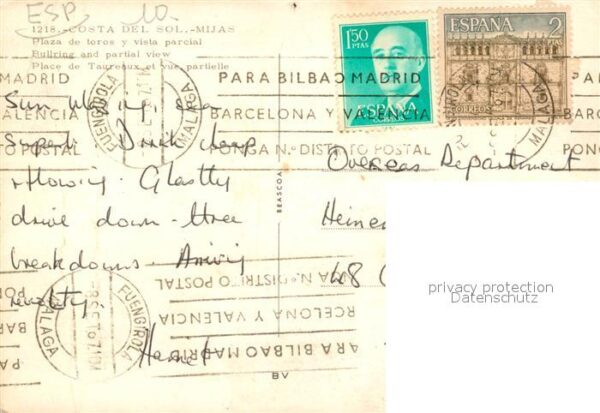 ESP 10.-
1218.-COSTA DEL SOL.-MIJAS
Plaza de toros y vista parcial
Bullring and partial view
Place de Taureaux et vue partielle
1'50 PTAS
ESPAÑA
CORREOS
ESPAÑA 2
CORREOS
MADRID
PARA BILBAO MADRID
VALENCIA
BARCELONA Y VALENCIA
BARCELONA
TO POSTAL
PONGA N.º DISTRITO POSTAL
PON
FUENGIROLA
MALAGA
FUENGIROLA
MALAGA
Sun shining, sea
superb. Drink cheap
+ flowing. Ghastly
drive down - three
breakdowns. Arriving
Overseas Department
Heine
48
BEASCOA
N.º DISTRITO POSTAL
RCELONA Y VALENCIA
ARA BILBAO MADRID
MALAGA
FUENGIROLA
BV
privacy protection
Datenschutz